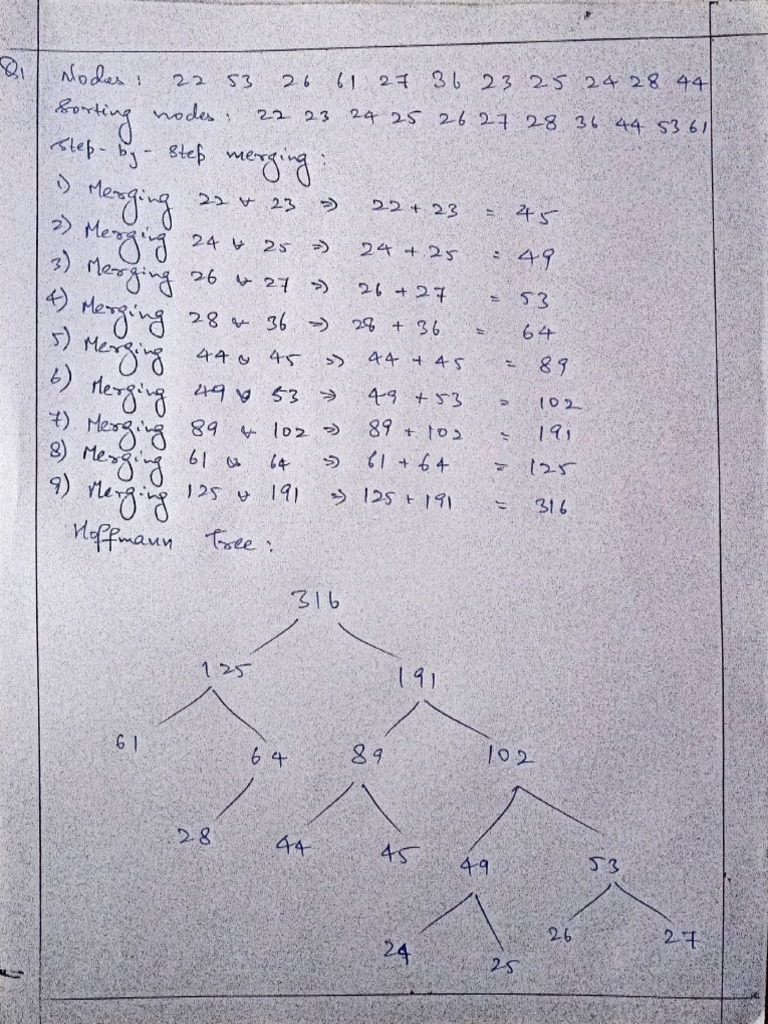 Q1 Nodes : 22 53 26 61 27 36 23 25 24 28 44
Sorting nodes : 22 23 24 25 26 27 28 36 44 53 61
Step-by-step merging :
1) Merging 22 & 23 ⇒ 22 + 23 = 45
2) Merging 24 & 25 ⇒ 24 + 25 = 49
3) Merging 26 & 27 ⇒ 26 + 27 = 53
4) Merging 28 & 36 ⇒ 28 + 36 = 64
5) Merging 44 & 45 ⇒ 44 + 45 = 89
6) Merging 49 & 53 ⇒ 49 + 53 = 102
7) Merging 89 & 102 ⇒ 89 + 102 = 191
8) Merging 61 & 64 ⇒ 61 + 64 = 125
9) Merging 125 & 191 ⇒ 125 + 191 = 316
Hoffmann Tree :
316
125 191
61 64 89 102
28 44 45 49 53
24 25 26 27